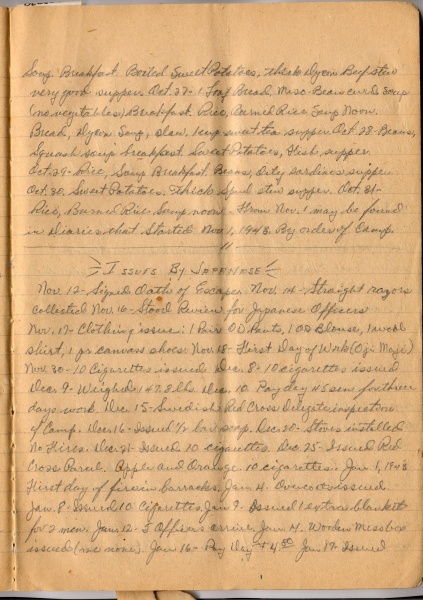 Soup. Breakfast. Boiled Sweet Potatoes, thick Dycon Beef stew
very good supper. Oct. 27- 1 loaf Bread, Miso- Bean curd soup
(no vegetables) Breakfast. Rice, Burned Rice Soup Noon.
Bread, Dycon Soup, Slaw, 1 cup sweet tea supper. Oct. 28- Beans,
Squash soup breakfast. Sweet Potatoes, Fish, supper.
Oct. 29- Rice, Soup Breakfast. Beans, Oily sardines supper
Oct. 30. Sweet Potatoes, thick Spud stew supper. Oct. 31-
Rice, Burned Rice Soup noon - From Nov. 1 may be found
in Diaries that started Nov 1, 1943. By order of Camp.
Issues By Japenese
Nov. 12- Signed Oaths of Escape. Nov. 14- Straight razors
collected Nov. 16- Stood Review for Japanese Officers
Nov. 17- Clothing issue: 1 Pair O D Pants, 1 OD Blouse, 1 wool
shirt, 1 pr. canvass shoes. Nov. 18- First Day of Work (Ogi Maji)
Nov. 30- 10 Cigarettes issued Dec. 8- 10 cigarettes issued
Dec. 9- Weighed 147.8 lbs. Dec. 10 Pay day 45 sen for three
days work. Dec. 15- Swedish Red Cross Delegate inspection
of Camp. Dec. 16- Issued 1/2 bar soap. Dec. 20- Stoves installed
No Fires. Dec. 21- Issued 10 cigarettes. Dec. 25- Issued Red
Cross Parcel. Apple and Orange. 10 cigarettes. Jan. 1, 1943
First day of fire in barracks. Jan 4. Overcoats issued.
Jan. 8- Issued 10 Cigarettes. Jan 9- Issued 1 extra blanket
for 2 men. Jan. 12- 5 Officers arrive. Jan. 14. Wooden Mess box
issued (me none). Jan 16- Pay Day Jan. 17- Issued